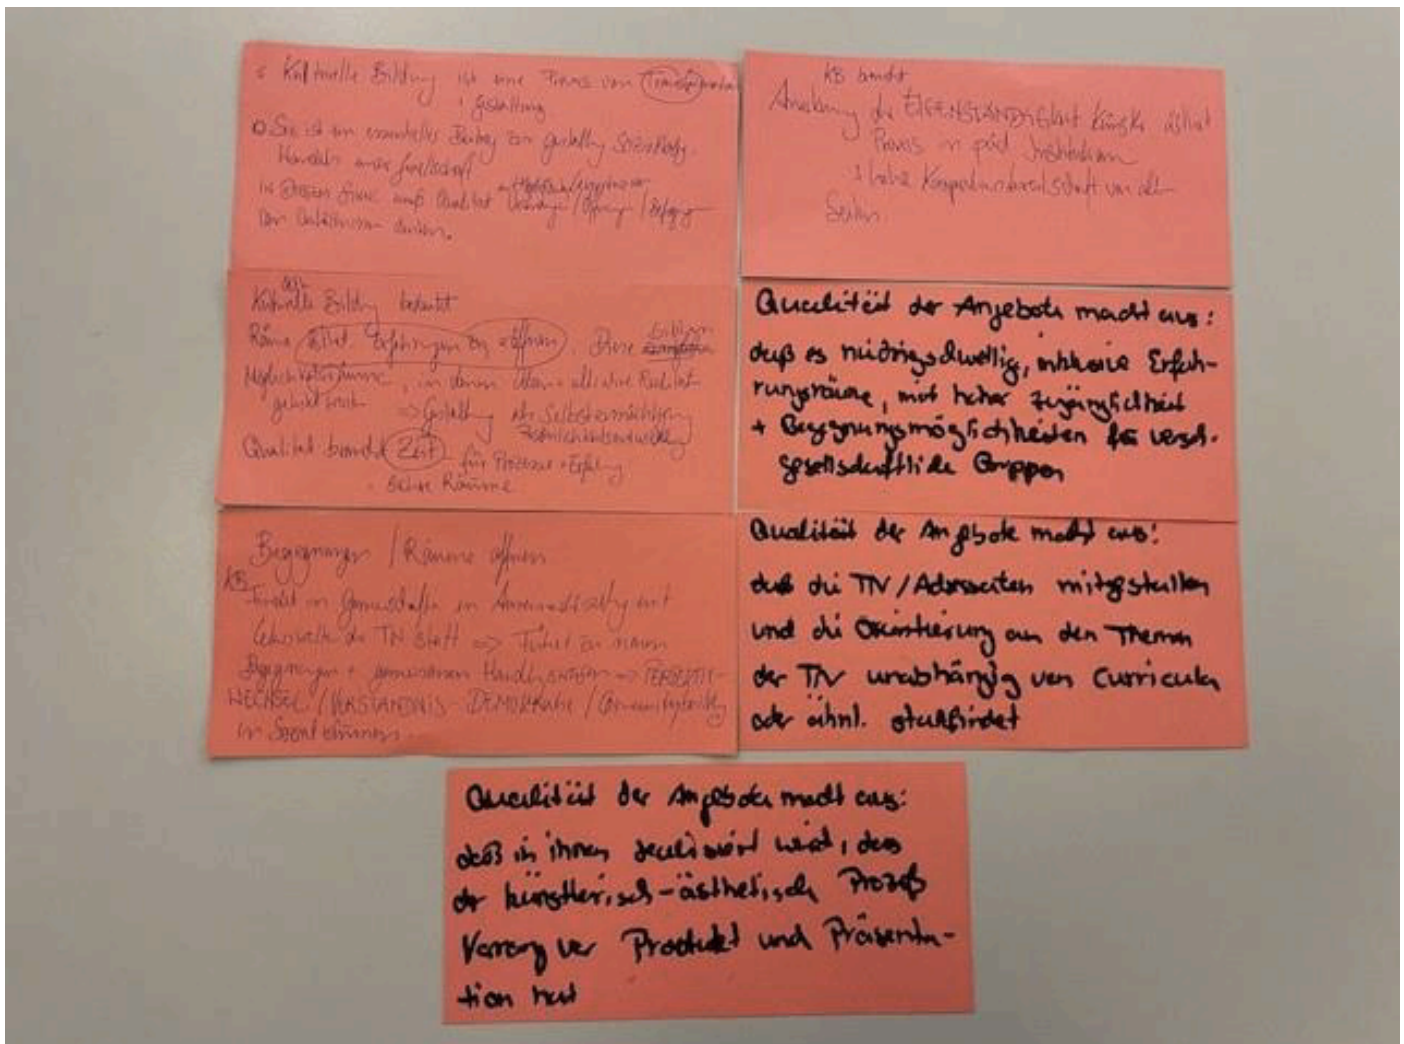 Kulturelle Bildung ist eine Praxis von Transformation
+ Gestaltung
Sie ist ein essentieller Beitrag zur Gestaltung
Handelns einer Gesellschaft
in diesem Sinne muß Qualität
von
KB braucht
Anerkennung der EIGENSTÄNDIGkeit künstl. ästhet
Praxis in päd Institutionen
+ hohe Kooperationsbereitschaft von allen
Seiten
Kulturelle Bildung bedeutet
Räume ästhet. Erfahrungen zu eröffnen. Diese bilden
Möglichkeitsräume, in denen
=> Gestaltung als Selbstermächtigung
Persönlichkeitsentwicklung
Qualität braucht Zeit für Prozesse + Erfahrung
Räume
Qualität der Angebote macht aus:
daß es niedrigschwellig, inklusive Erfah-
rungsräume, mit hoher Zugänglichkeit
+ Begegnungsmöglichkeiten für versch.
gesellschaftliche Gruppen
Begegnungen / Räume öffnen
KB
findet in Gemeinschaft in Auseinandersetzung mit
Lebenswelt der TN statt => Führt zu neuen
Begegnungen + gemeinsamen => PERSPEKTIV-
WECHSEL / VERSTÄNDNIS DEMOKRATIE /
in Sozialräumen.
Qualität der Angebote macht aus:
daß die TN/Adressaten mitgestalten
und die Orientierung an den Themen
der TN unabhängig von Curricula
oder ähnl. stattfindet
Qualität der Angebote macht aus:
daß in ihnen realisiert wird, dass
der künstlerisch-ästhetische Prozeß
Vorrang vor Produkt und Präsenta-
tion hat